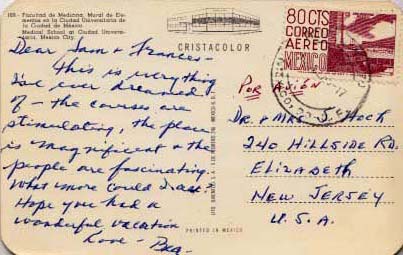 103 - Facultad de Medicina, Mural de Ele-
mentos en la Ciudad Universitaria de
la Ciudad de México.
Medical School at Ciudad Univers-
Mexico City.
CRISTACOLOR
80 CTS
CORREO
AEREO
MEXICO
Dear Sam & Frances -
This is everything
I've ever dreamed
of - the courses are
stimulating, the place
is magnificent & the
people are fascinating.
What more could I ask?
Hope you had a
wonderful vacation
Love -
POR AVION
DR. & MRS. J. HOCH
240 HILLSIDE RD.
ELIZABETH
NEW JERSEY
U.S.A.
PRINTED IN MEXICO